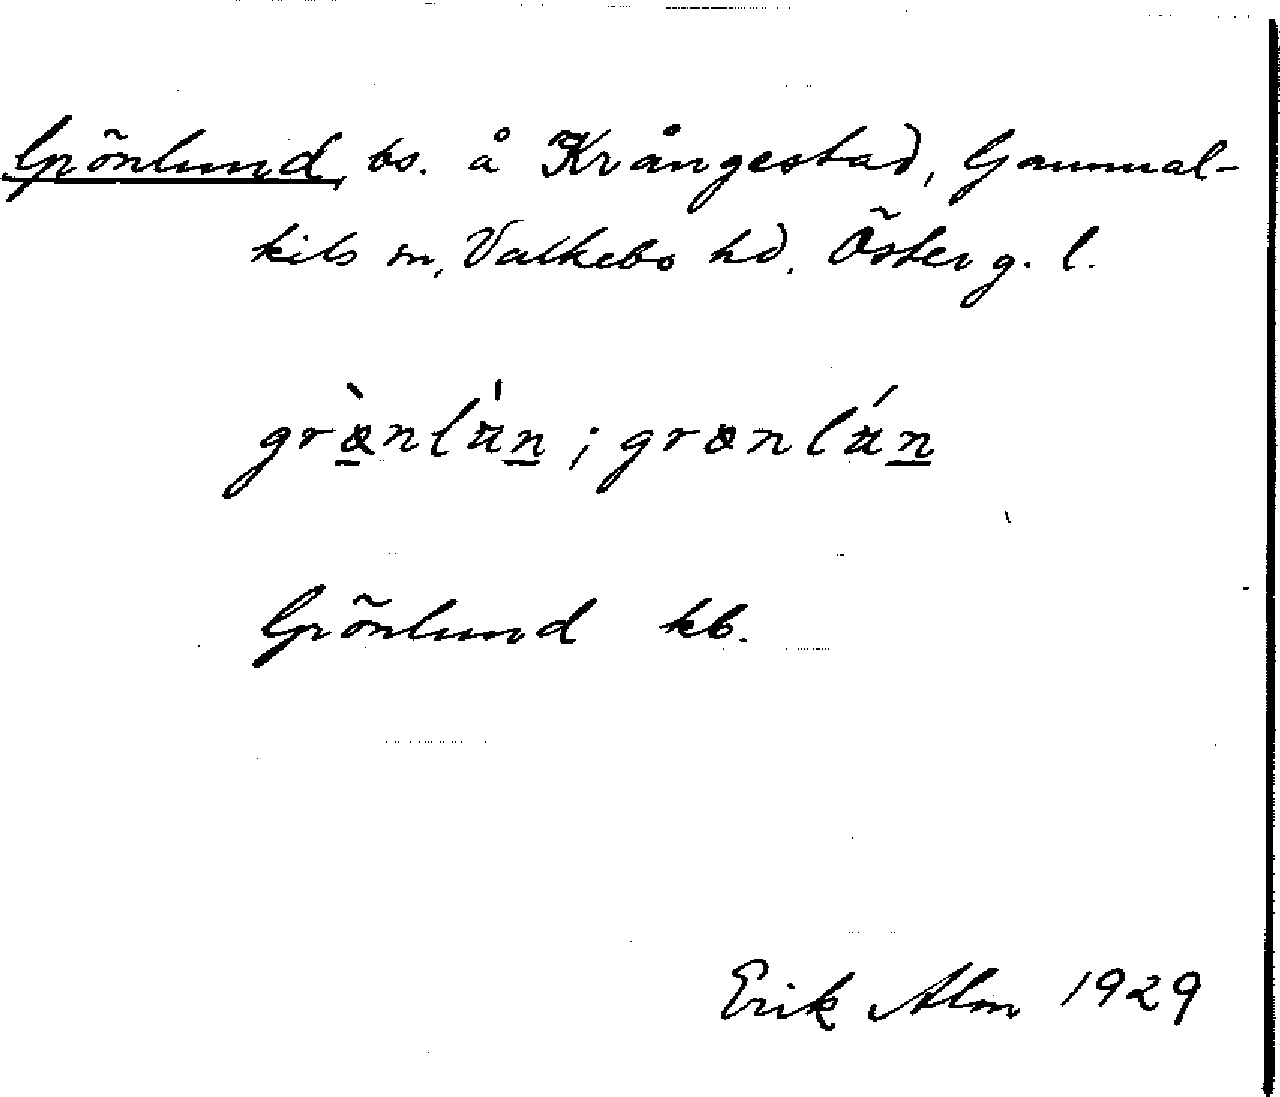 Grönlund, bs. å Krångestad, Gammal-
kils sn, Valkebo hd, Österg. l.
grœ̀nlu̍n; grœnlún
Grönlund kb.
Erik Alm 1929